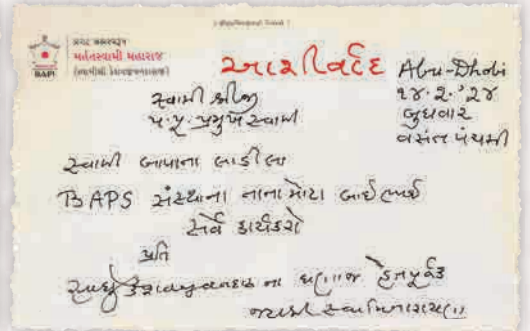 પ્રગટ બ્રહ્મસ્વરૂપ
મહંતસ્વામી મહારાજ
(સ્વામીશ્રી કેશવજીવનદાસજી)
BAPS
આશીર્વાદ
Abu-Dhabi
૧૪.૨.'૨૪
બુધવાર
વસંત પંચમી
સ્વામી શ્રીજી
પ.પૂ. પ્રમુખસ્વામી
સ્વામી બાપાના લાડીલા
BAPS સંસ્થાના નાના મોટા બાઈ ભાઈ
સર્વે કાર્યકરો
પ્રતિ
સાધુ કેશવજીવનદાસ ના ઘણાજ હેતપૂર્વક
જય શ્રી સ્વામિનારાયણ